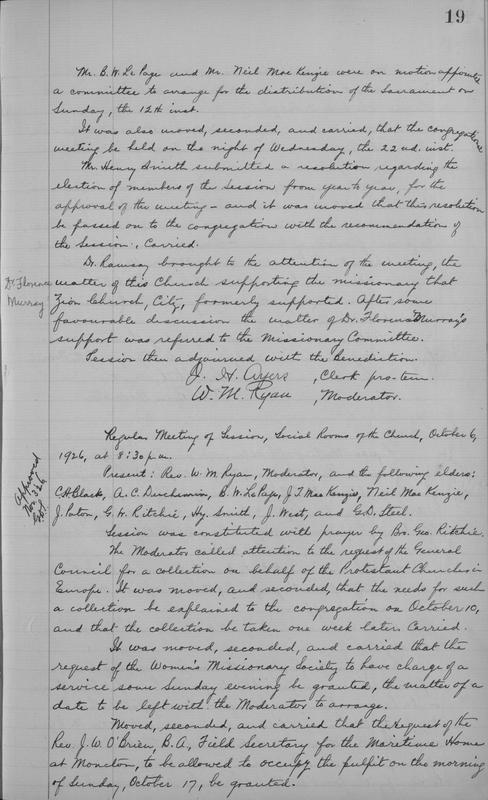 19
Mr. B. W. Le Page and Mr. Neil Mac Kenzie were on motion appointed
a committee to arrange for the distribution of the Sacrament on
Sunday, the 12th inst.
It was also moved, seconded, and carried, that the congregational
meeting be held on the night of Wednesday, the 22nd. inst.
Mr. Henry Smith submitted a resolution regarding the
election of members of the Session from year to year, for the
approval of the meeting - and it was moved that this resolution
be passed on to the congregation with the recommendation of
the Session. Carried.
Dr. Ramsay brought to the attention of the meeting, the
Dr. Florence
Murray
matter of this Church supporting the missionary that
Zion Church, City, formerly supported. After some
favourable discussion the matter of Dr. Florence Murray's
support was referred to the Missionary Committee.
Session then adjourned with the Benediction.
J. H. Ayers, Clerk pro-tem.
W. M. Ryan, Moderator.
Regular Meeting of Session, Social Rooms of the Church, October 6,
1926, at 8:30 p.m.
Approved
Nov. 3 26
Present: Rev. W. M. Ryan, Moderator, and the following elders:
C. H. Black, A. C. Duchemin, B. W. LePage, J. T. Mac Kenzie, Neil Mac Kenzie,
J. Paton, G. H. Ritchie, Hy. Smith, J. West, and G. D. Steel.
Session was constituted with prayer by Bro. Geo. Ritchie.
The Moderator called attention to the request of the General
Council for a collection on behalf of the Protestant Churches in
Europe. It was moved, and seconded, that the needs for such
a collection be explained to the congregation on October 10,
and that the collection be taken one week later. Carried.
It was moved, seconded, and carried that the
request of the Women's Missionary Society to have charge of a
service some Sunday evening be granted, the matter of a
date to be left with the Moderator to arrange.
Moved, seconded, and carried that the request of the
Rev. J. W. O'Brien, B.A., Field Secretary for the Maritime Home
at Moncton, to be allowed to occupy the pulpit on the morning
of Sunday, October 17, be granted.